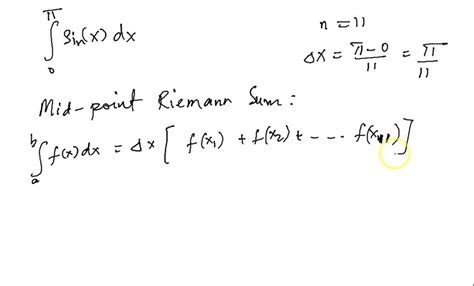 ∫₀^π Sin(x) dx
n = 11
Δx = (π-0)/11 = π/11
Mid-point Riemann Sum:
∫ₐᵇ f(x) dx = Δx [ f(x₁) + f(x₂) + --- f(x₁₁) ]